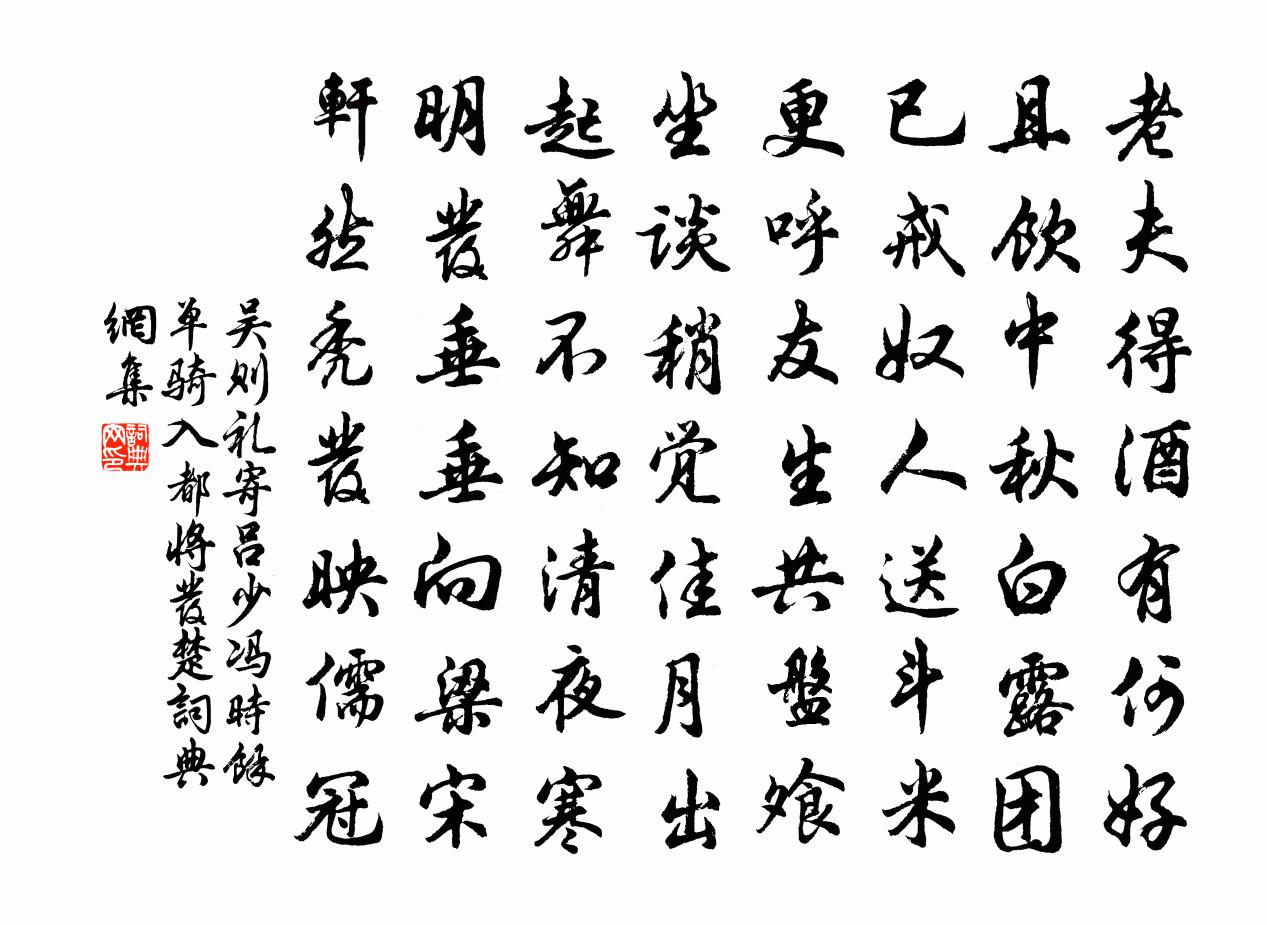 老夫得酒有何好
且飲中秋白露团
已戒奴人送斗米
更呼友生共盤飧
坐谈稍觉佳月出
起舞不知清夜寒
明發垂垂向梁宋
軒然秃發映儒冠
吴则礼寄吕少冯時餘
单骑入都将發楚詞典
網集
詞典网印